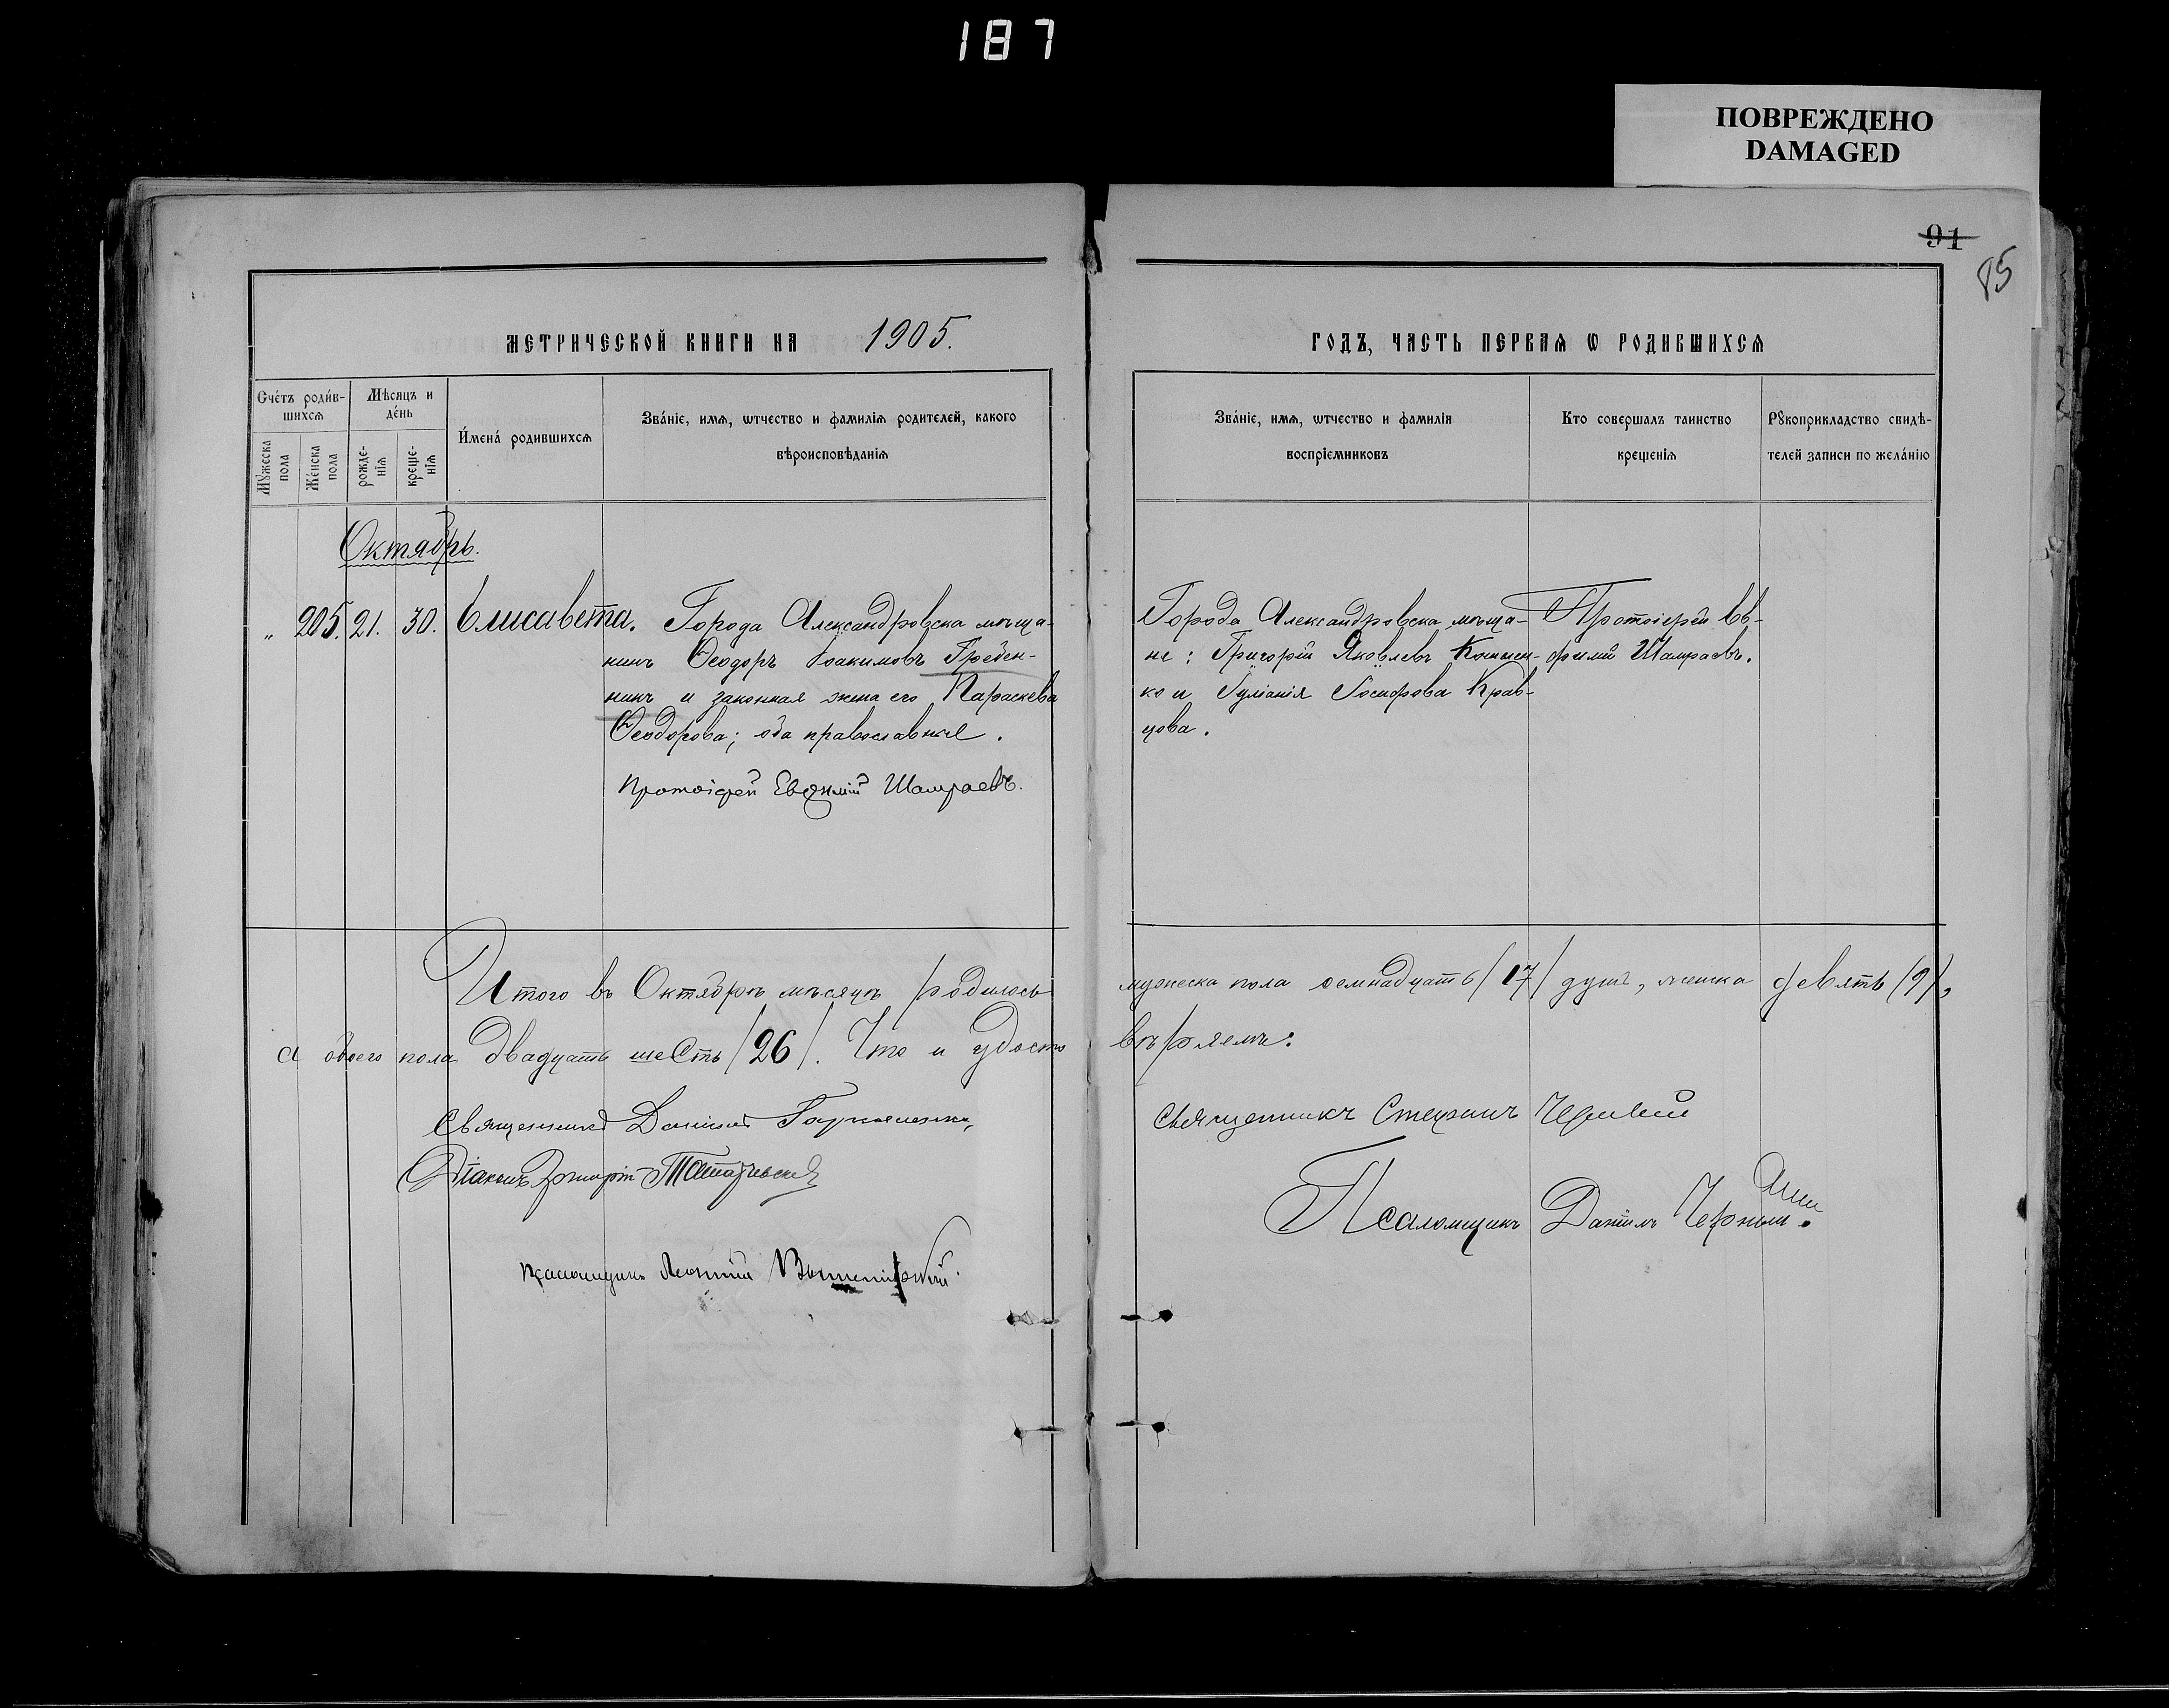 187
ПОВРЕЖДЕНО
DAMAGED
91
85
МЕТРИЧЕСКОЙ КНИГИ НА 1905.
ГОДЪ, ЧАСТЬ ПЕРВАѦ Ѡ РОДИВШИХСѦ
Счéтъ роди́в-
шихсѧ
Мѣсяцъ и
дéнь
Мꙋ́жеска пола
Жéнска пола
рожде-
нїѧ
креще-
нїѧ
И́мена́ родившихсѧ
Зва́нїе, имѧ, ѡтчество и фамилїѧ родителей, какого
вѣроисповѣданїѧ
Зва́нїе, имѧ, ѡтчество и фамилїѧ
воспрїемниковъ
Кто совершалъ таинство
крещенїѧ
Рꙋкоприкладство свидѣ-
телей записи по жела́нїю
Октябрь.
„ 205. 21. 30. Елисавета.
Города Александровска мѣща-
нинъ Ѳеодоръ Іоакимовъ Гребен-
никъ и законная жена его Параскева
Ѳеодорова; оба православные.
Протоіерей Евѳимій Шамраевъ.
Города Александровска мѣща-
не: Григорій Яковлевъ
ко и Іуліанія Іосифова Крав-
цова.
Протоіерей Ев-
фимій Шамраевъ.
Итого въ Октябрѣ мѣсяцѣ родилось
мужеска пола семнадцать /17/ душъ, женска девять /9/,
а обоего пола двадцать шесть /26/. Что и удосто
вѣряемъ:
Священникъ Даніилъ
Діаконъ
Псаломщикъ
Священникъ Стефанъ
Псаломщикъ Даніилъ